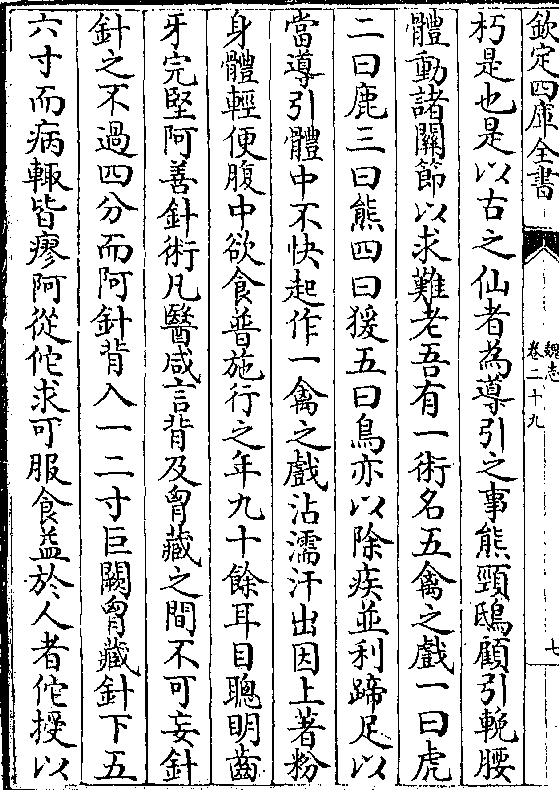 欽定四庫全書
魏志
卷二十九
七
朽是也是以古之仙者為導引之事熊頸鴟顧引輓腰
體動諸關節以求難老吾有一術名五禽之戲一曰虎
二曰鹿三曰熊四曰猨五曰鳥亦以除疾並利蹄足以
當導引體中不快起作一禽之戲沾濡汗出因上著粉
身體輕便腹中欲食普施行之年九十餘耳目聰明齒
牙完堅阿善針術凡醫咸言背及胷藏之間不可妄針
針之不過四分而阿針背入一二寸巨闕胷藏針下五
六寸而病輙皆瘳阿從佗求可服食益於人者佗授以